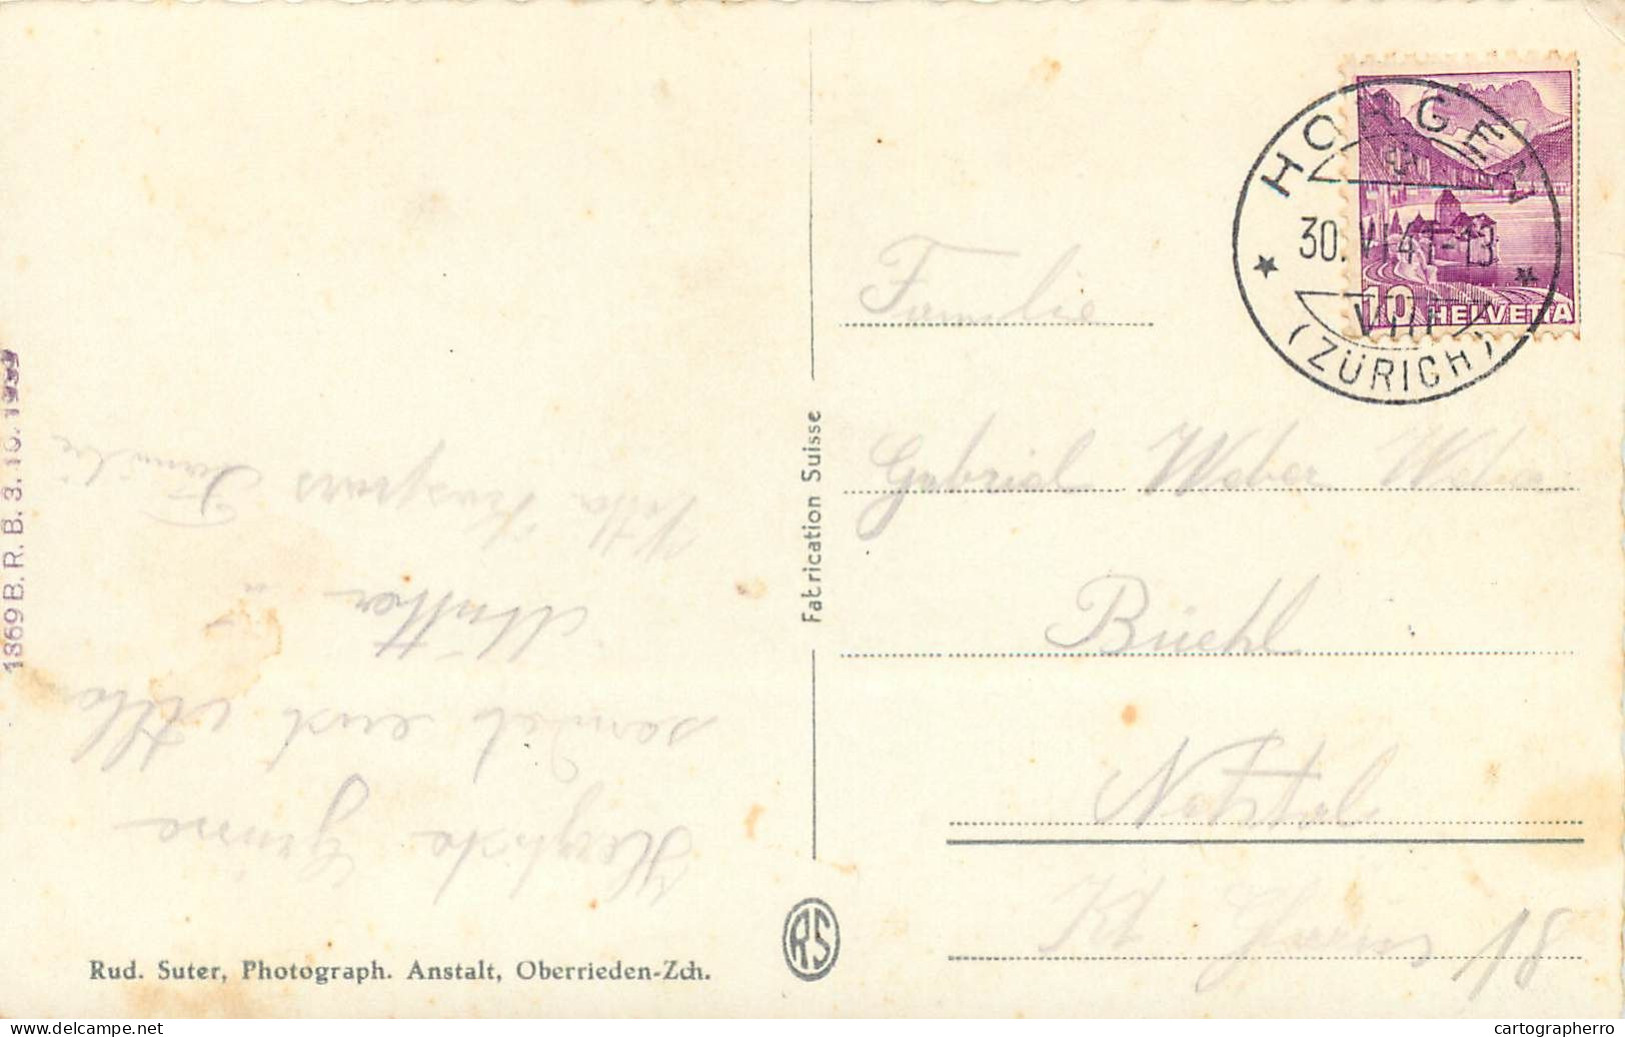 Herzliche Grüsse
sendet euch Otto
Mutter u
Familie
1869 B. R. B. 3. 10. 1939
Rud. Suter, Photograph. Anstalt, Oberrieden-Zch.
Fabrication Suisse
RS
HORGEN
30. VI 41-13
VIII
(ZÜRICH)
10 HELVETIA
Familie
Gabriel Weber Weber
Büehl
Netstal
Kt Glarus
delcampe.net
cartographerro